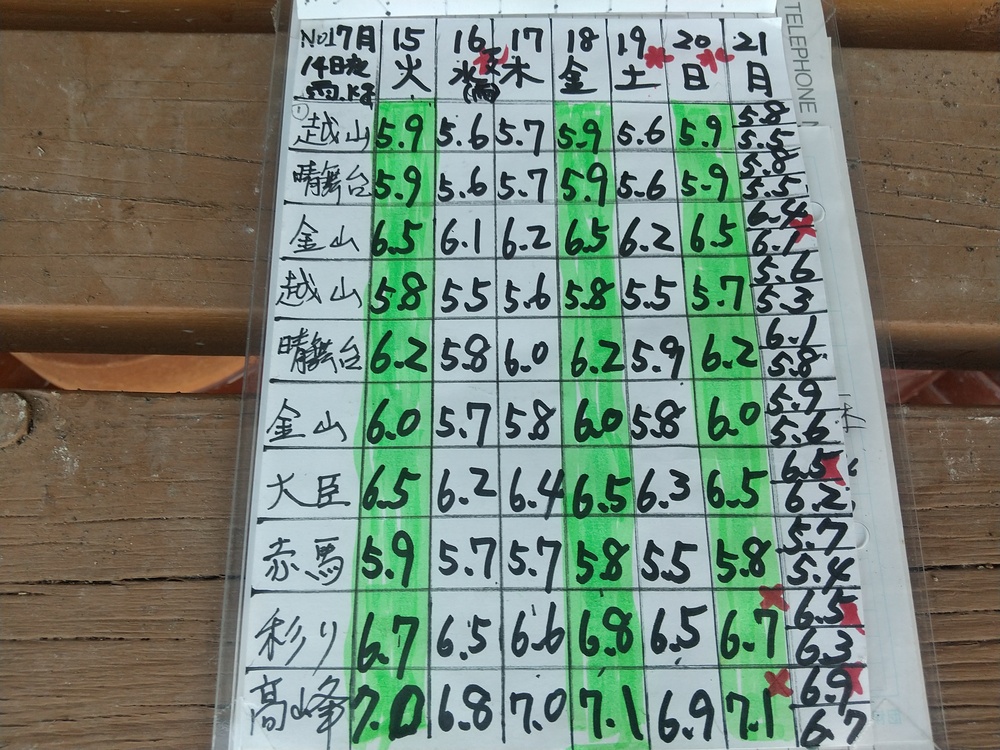 No17月 15 16 17 18 19 20 21
14日夜 火 水 木 金 土 日 月
雨
①
越山 5.9 5.6 5.7 5.9 5.6 5.9 5.8 5.5
晴舞台 5.9 5.6 5.7 5.9 5.6 5.9 5.8 5.5
金山 6.5 6.1 6.2 6.5 6.2 6.5 6.4 6.1
越山 5.8 5.5 5.6 5.8 5.5 5.7 5.6 5.3
晴舞台 6.2 5.8 6.0 6.2 5.9 6.2 6.1 5.8
金山 6.0 5.7 5.8 6.0 5.8 6.0 5.9 5.6
大臣 6.5 6.2 6.4 6.5 6.3 6.5 6.5 6.2
赤馬 5.9 5.7 5.7 5.8 5.5 5.8 5.7 5.4
彩り 6.7 6.5 6.6 6.8 6.5 6.7 6.5 6.3
高峰 7.0 6.8 7.0 7.1 6.9 7.1 6.9 6.7
TELEPHONE